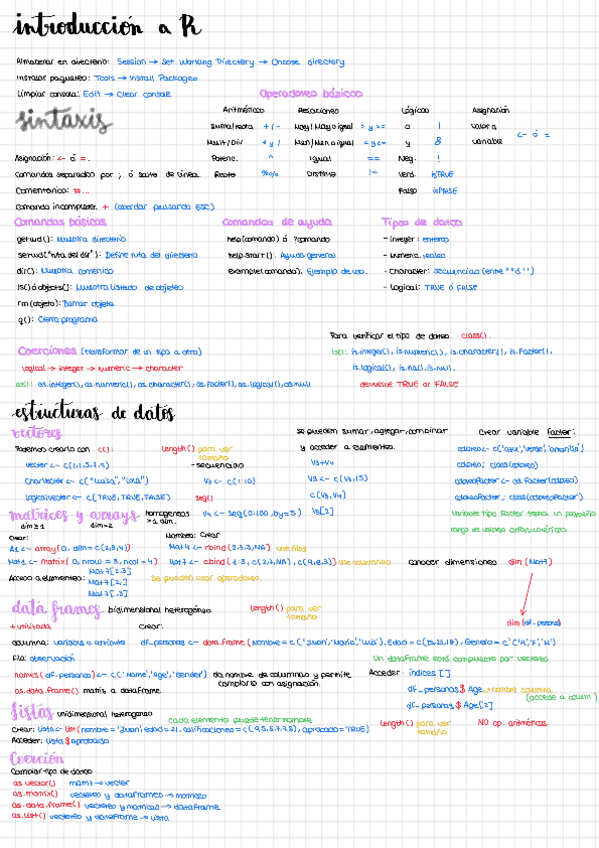 introducción a R
Almacenar en directorio: Session → Set Working Directory → Choose directory
Instalar paquetes: Tools → Install Packages
Limpiar consola: Edit → Clear console
Operadores básicos
sintaxis
Aritméticos Relaciones Lógicos Asignación
Suma/resta + / - May/Mayo igual > y >= o | Valor a
Mult/Div * y / Men/Men o igual < y <= y & variable <- ó =
Asignación: <- ó =. Potenc. ^ Igual == Neg. !
Comandos separados por ; ó salto de línea. Resto %% Distinto != Verd. isTRUE
Comentarios: #... Falso isFALSE
Comando incompleto: + (abordar pulsando ESC)
Comandos básicos Comandos de ayuda Tipos de datos
getwd(): Muestra directorio help(comando) ó ?comando - Integer: enteros
setwd("ruta del dir"): Define ruta del directorio help.start(): Ayuda general - Numeric: reales
dir(): Muestra contenido example(comando): Ejemplo de uso. - Character: secuencias (entre " " ó ' ')
ls() ó objects(): Muestra listado de objetos - Logical: TRUE ó FALSE
rm(objeto): Borrar objeto
q(): Cierra programa
Para verificar el tipo de datos class()
Coerciones (transformar de un tipo a otro) is(): is.integer(), is.numeric(), is.character(), is.factor(),
logical → integer → numeric → character is.logical(), is.na(), is.null.
as(): as.integer(), as.numeric(), as.character(), as.factor(), as.logical(), as.null devuelve TRUE or FALSE
estructuras de datos
vectores
Podemos crearlo con c(): length() para ver tamaño
se pueden sumar, agregar, combinar y acceder a elementos.
Crear variable Factor:
vector <- c(1,1,5,3,4) - secuencias V3+V4
CharVector <- c("Luisa", "Lola") V3 <- c(1:10) V3 <- c(V3,15)
LogicalVector <- c(TRUE, TRUE, FALSE) seq() c(V3,V4)
V4 <- seq(0:100, by=5) V3[2]
colores; class(colores)
coloresFactor <- as.factor(colores)
coloresFactor; class(coloresFactor)
Variable tipo factor toma un pequeño
rango de valores
matrices y arrays homogéneos
dim≥1 dim=2 >1 dim.
Crear: Nombres: Crear
A1 <- array(0, dim=c(2,3,4)) Mat4 <- rbind(2,3,3,NA) une filas
Mat1 <- matrix(0, nrow=3, ncol=4) Mat7 <- cbind(1:3, c(2,7,NA), c(9,8,3)) une columnas
conocer dimensiones dim(Mat7)
Acceso a elementos: Mat7[2,3] Se pueden usar operadores.
Mat7[2,]
Mat7[,3]
dim(df_personas)
data frames bidimensional heterogéneo length() para ver tamaño
+ utilizada Crear:
columna: variable o atributo df_personas <- data.frame(Nombre=c("Juan","María","Luis"), Edad=c(25,23,19), Genero=c('H','F','M'))
Fila: observación Un dataframe está compuesto por vectores
names(df_personas) <- c('Name','Age','Gender') da nombre de columnas y permite cambiarlo con asignación.
Acceder: índices []
df_personas $ Age → nombre columna (accede a colum)
as.data.frame() matriz a dataframe df_personas $ Age[2]
listas unidimensional heterogéneo
cada elemento puede tener nombre
Crear: lista <- list(nombre="Juan", edad=21, calificaciones=c(9,5,6,7,7,8), aprobado=TRUE)
length() para ver tamaño NO op. aritméticas.
Acceder: lista $ aprobado
Coerción
Cambiar tipo de datos
as.vector() matriz → vector
as.matrix() vectores y dataframes → matrices
as.data.frame() vectores y matrices → dataframe
as.list() vectores y dataframe → lista.